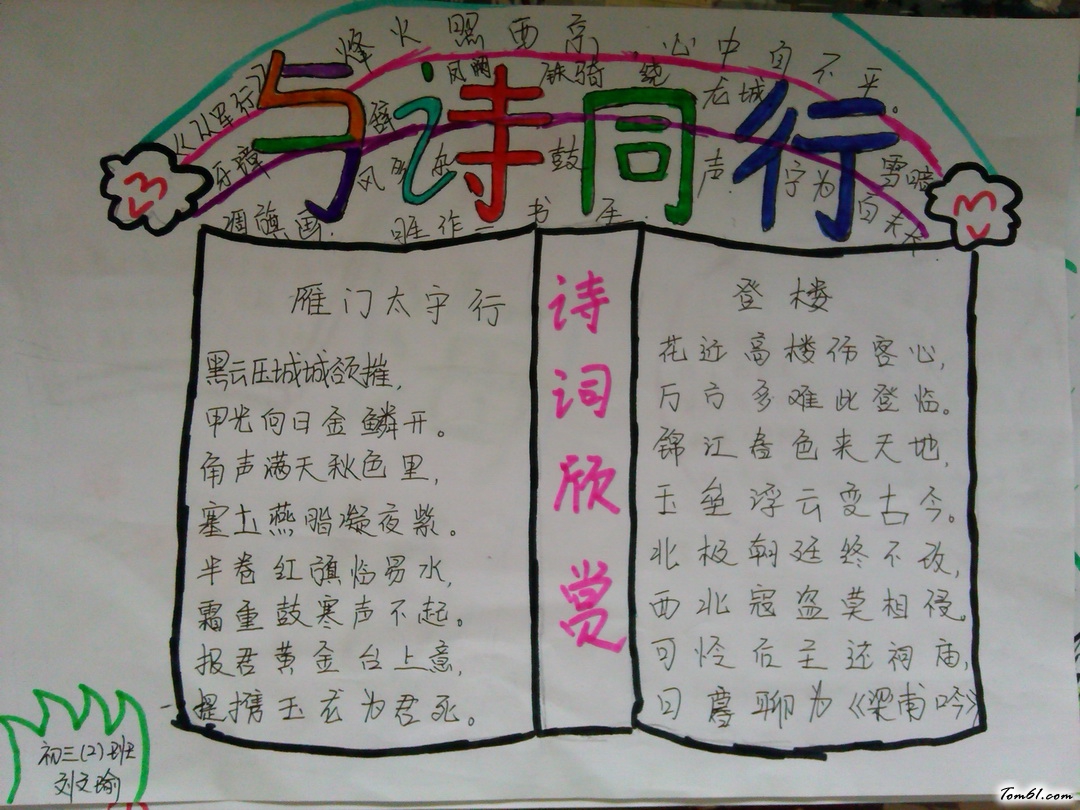 《从军行》烽火照西京,心中自不平。
牙璋辞凤阙 铁骑绕龙城 雪暗
凋旗画.风多杂鼓声.宁为百夫长
胜作一书生.
与诗同行
诗词欣赏
雁门太守行
黑云压城城欲摧,
甲光向日金鳞开。
角声满天秋色里,
塞土燕脂凝夜紫。
半卷红旗临易水,
霜重鼓寒声不起。
报君黄金台上意,
提携玉龙为君死。
登楼
花近高楼伤客心,
万方多难此登临。
锦江春色来天地,
玉垒浮云变古今。
北极朝廷终不改,
西北寇盗莫相侵。
可怜后主还祠庙,
日暮聊为《梁甫吟》
初三(2)班
刘文瑜
Tom61.com